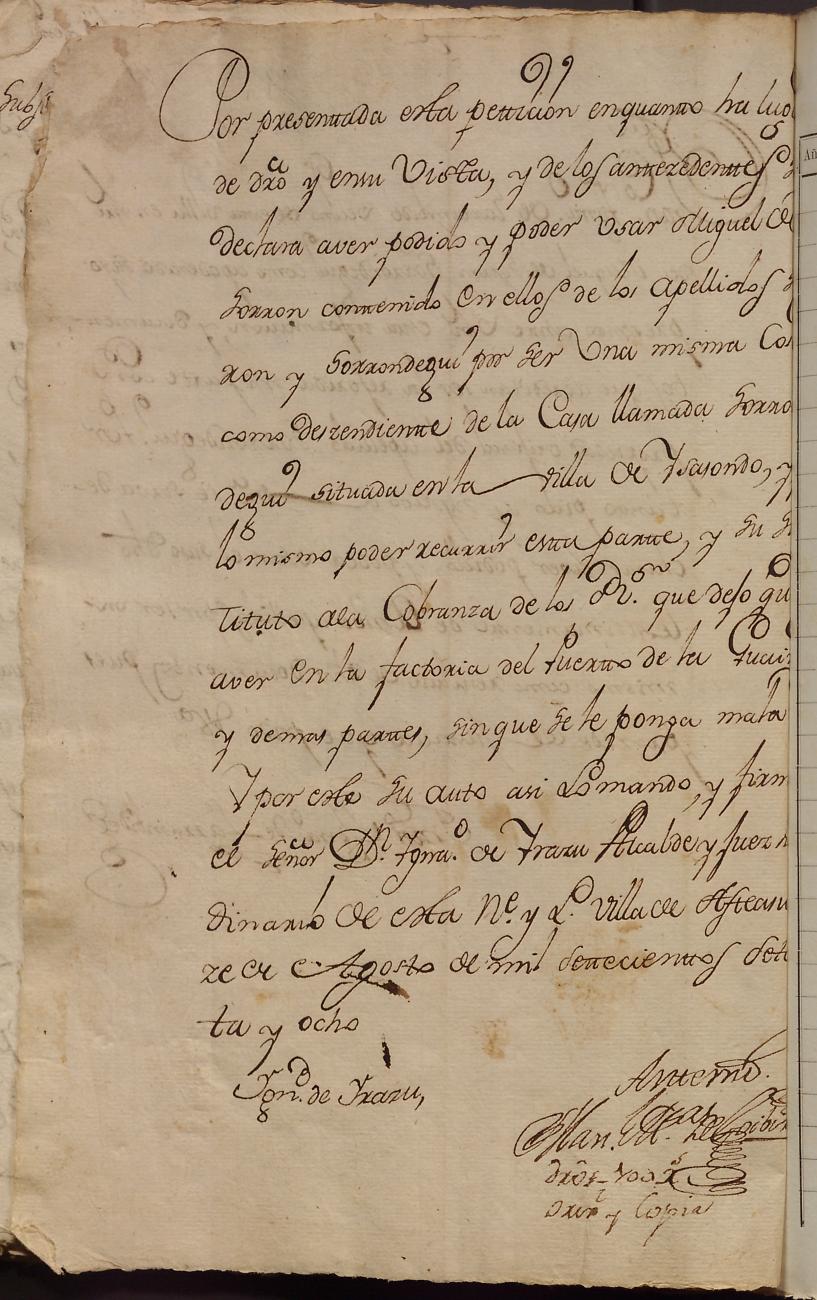 Subs
Por presenttada estta pettizion enquantto ha lug
de dro y en su Vistta, y de los anttezedenttes
declara aver podido y poder Usar Miguel de
Sorron conttenido en ellos de los Apellidos
ron y Sorrondegui por ser Una misma Cos
como deszendientte de la Casa llamada Sorro
degui situada en la villa de Ysasondo, y
lo mismo poder recurrir estta partte, y su S
tituto ala Cobranza de los Rs. que dejo qu
aver en la facttoria del Puertto de la Guai
y demas parttes, sin que se le ponga mala
Y por este su autto asi Lo mando, y firm
el Señor Dn. Ygnao. de Yrazu Alcalde y Juez
dinario de esta Ne. y L. Villa de Asteasu
ze de Agosto de mil settecienttos sett
ta y ocho
Ygno. de Yrazu,
Antte mi.
Man.
dros
y Copia